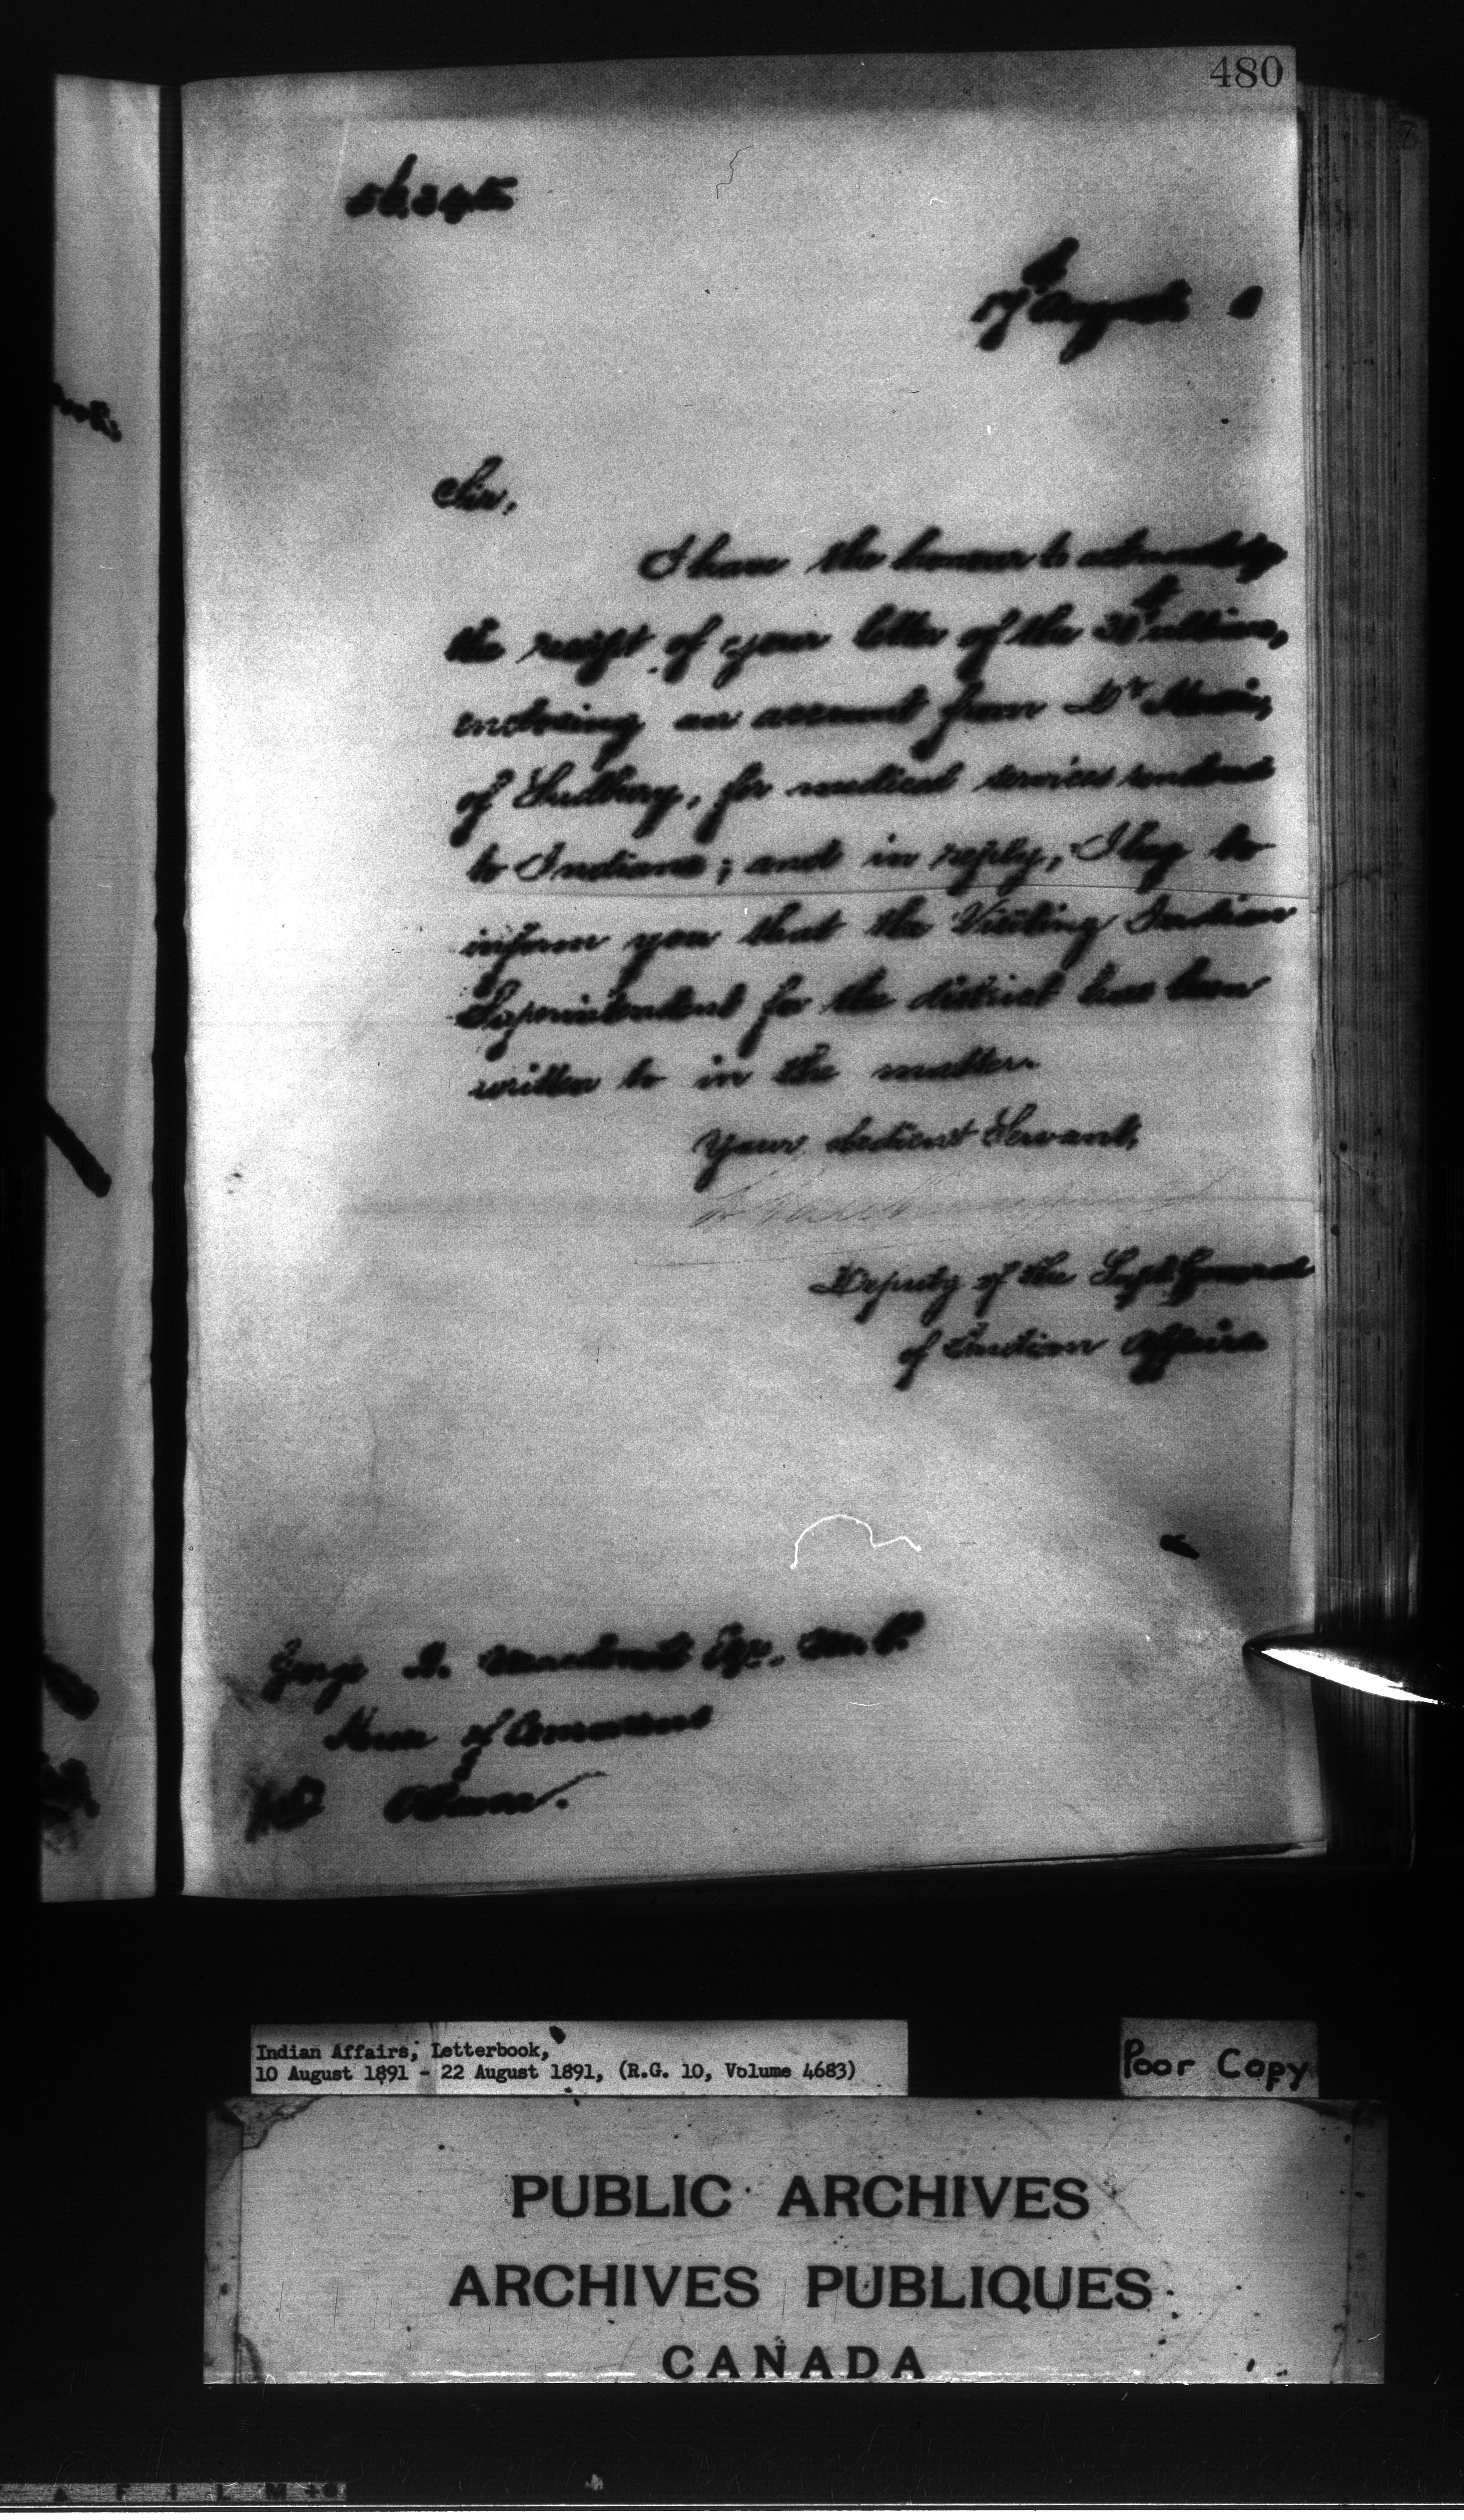 480
17th August 1
Sir,
I have the honour to acknowledge
the receipt of your letter of the 31st ultimo,
enclosing an account from Dr
of Sudbury, for medical services rendered
to Indians; and in reply, I beg to
inform you that the Visiting Indian
Superintendent for the district has been
written to in the matter.
Your obedient Servant,
Deputy of the Supt. General
of Indian Affairs
George H. Macdonell Esqr., M.P.
House of Commons
Ottawa.
Indian Affairs, Letterbook,
10 August 1891 - 22 August 1891, (R.G. 10, Volume 4683)
Poor Copy
PUBLIC ARCHIVES
ARCHIVES PUBLIQUES
CANADA